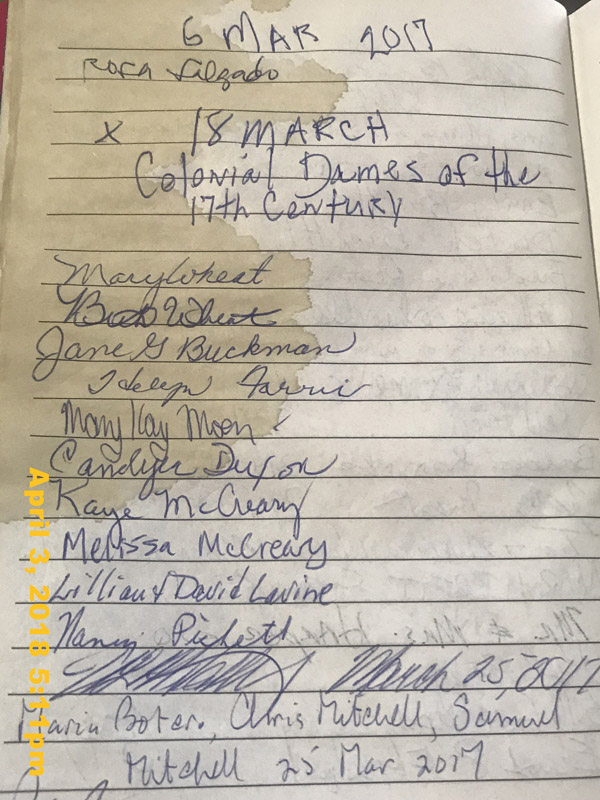 6 MAR 2017
Rosa Salgado
x 18 MARCH
Colonial Dames of the
17th Century
Mary Wheat
Bob Wheat
Jane G Buckman
Mary Kay Moon
Candyce Dixon
Kaye McCreary
Melissa McCreary
Lillian & David Lavine
Nancy Pickett
March 25, 2017
Maria Botero, Chris Mitchell, Samuel
Mitchell 25 Mar 2017
April 3, 2018 5:11pm